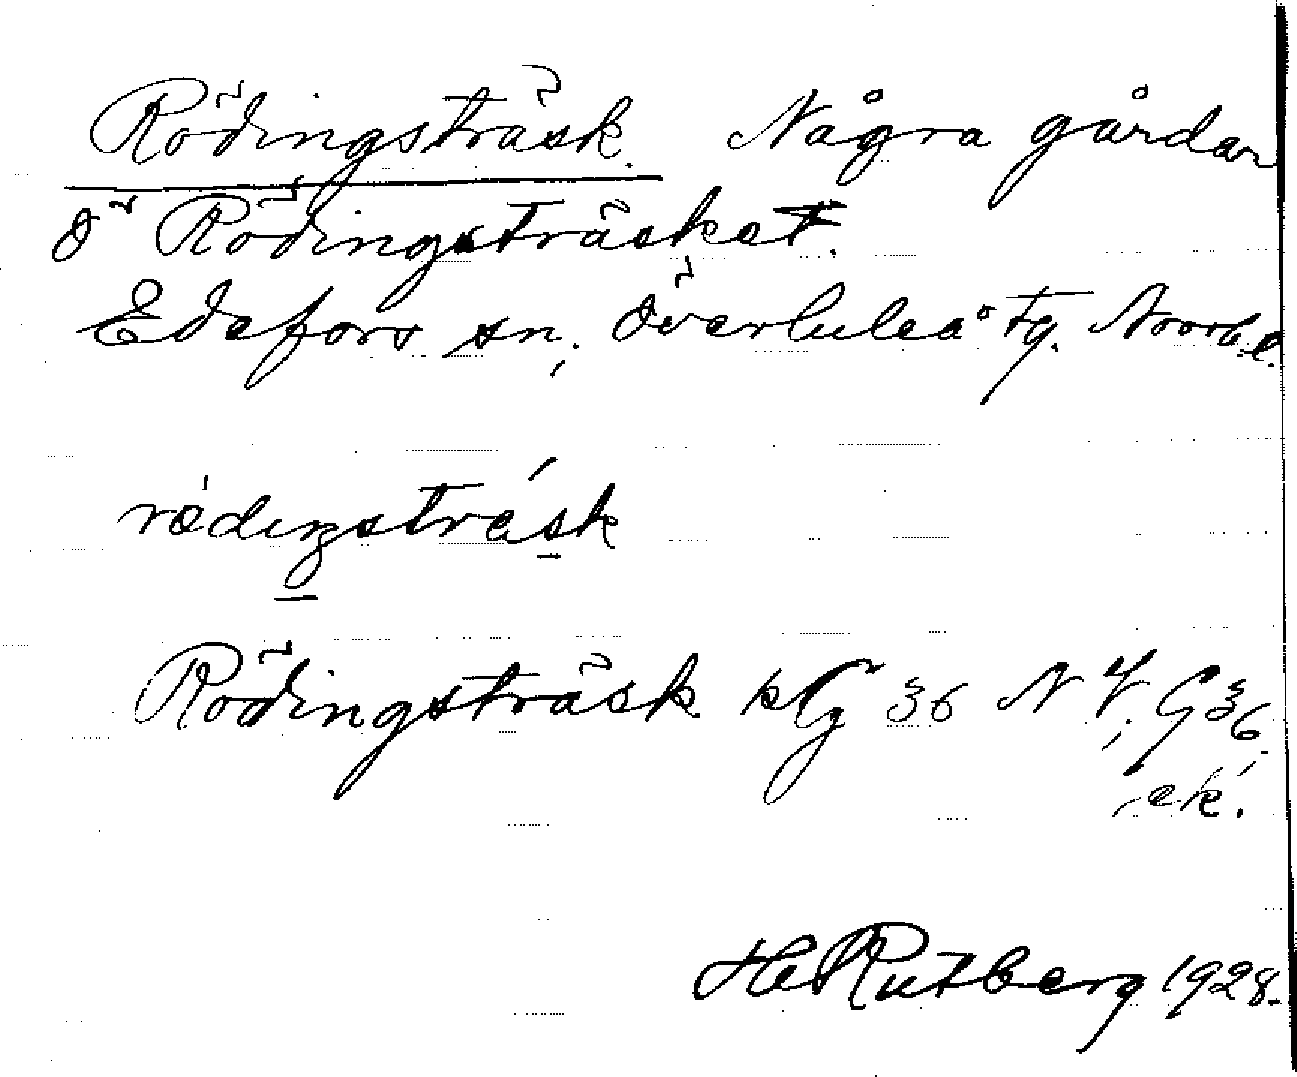 Rödingsträsk. Några gårdar
ö Rödingsträsket.
Edefors sn, Överluleå tg. Norrb. l.
rödiŋstrásk
Rödingsträsk kG 36 N V, G 36
ek.
H Rutberg 1928.